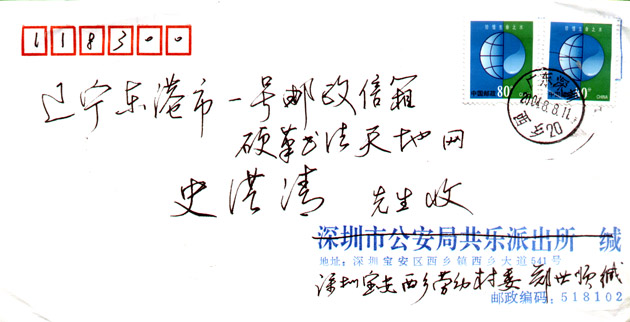 118300
珍惜生命之水
中国邮政 80分 CHINA
广东深圳
2004.8.8.11
西乡20
辽宁东港市一号邮政信箱
硬笔书法天地网
史洪清 先生收
深圳市公安局共乐派出所 缄
地址:深圳宝安区西乡镇西乡大道541号
深圳宝安西乡劳动村委 郑世顺缄
邮政编码:518102